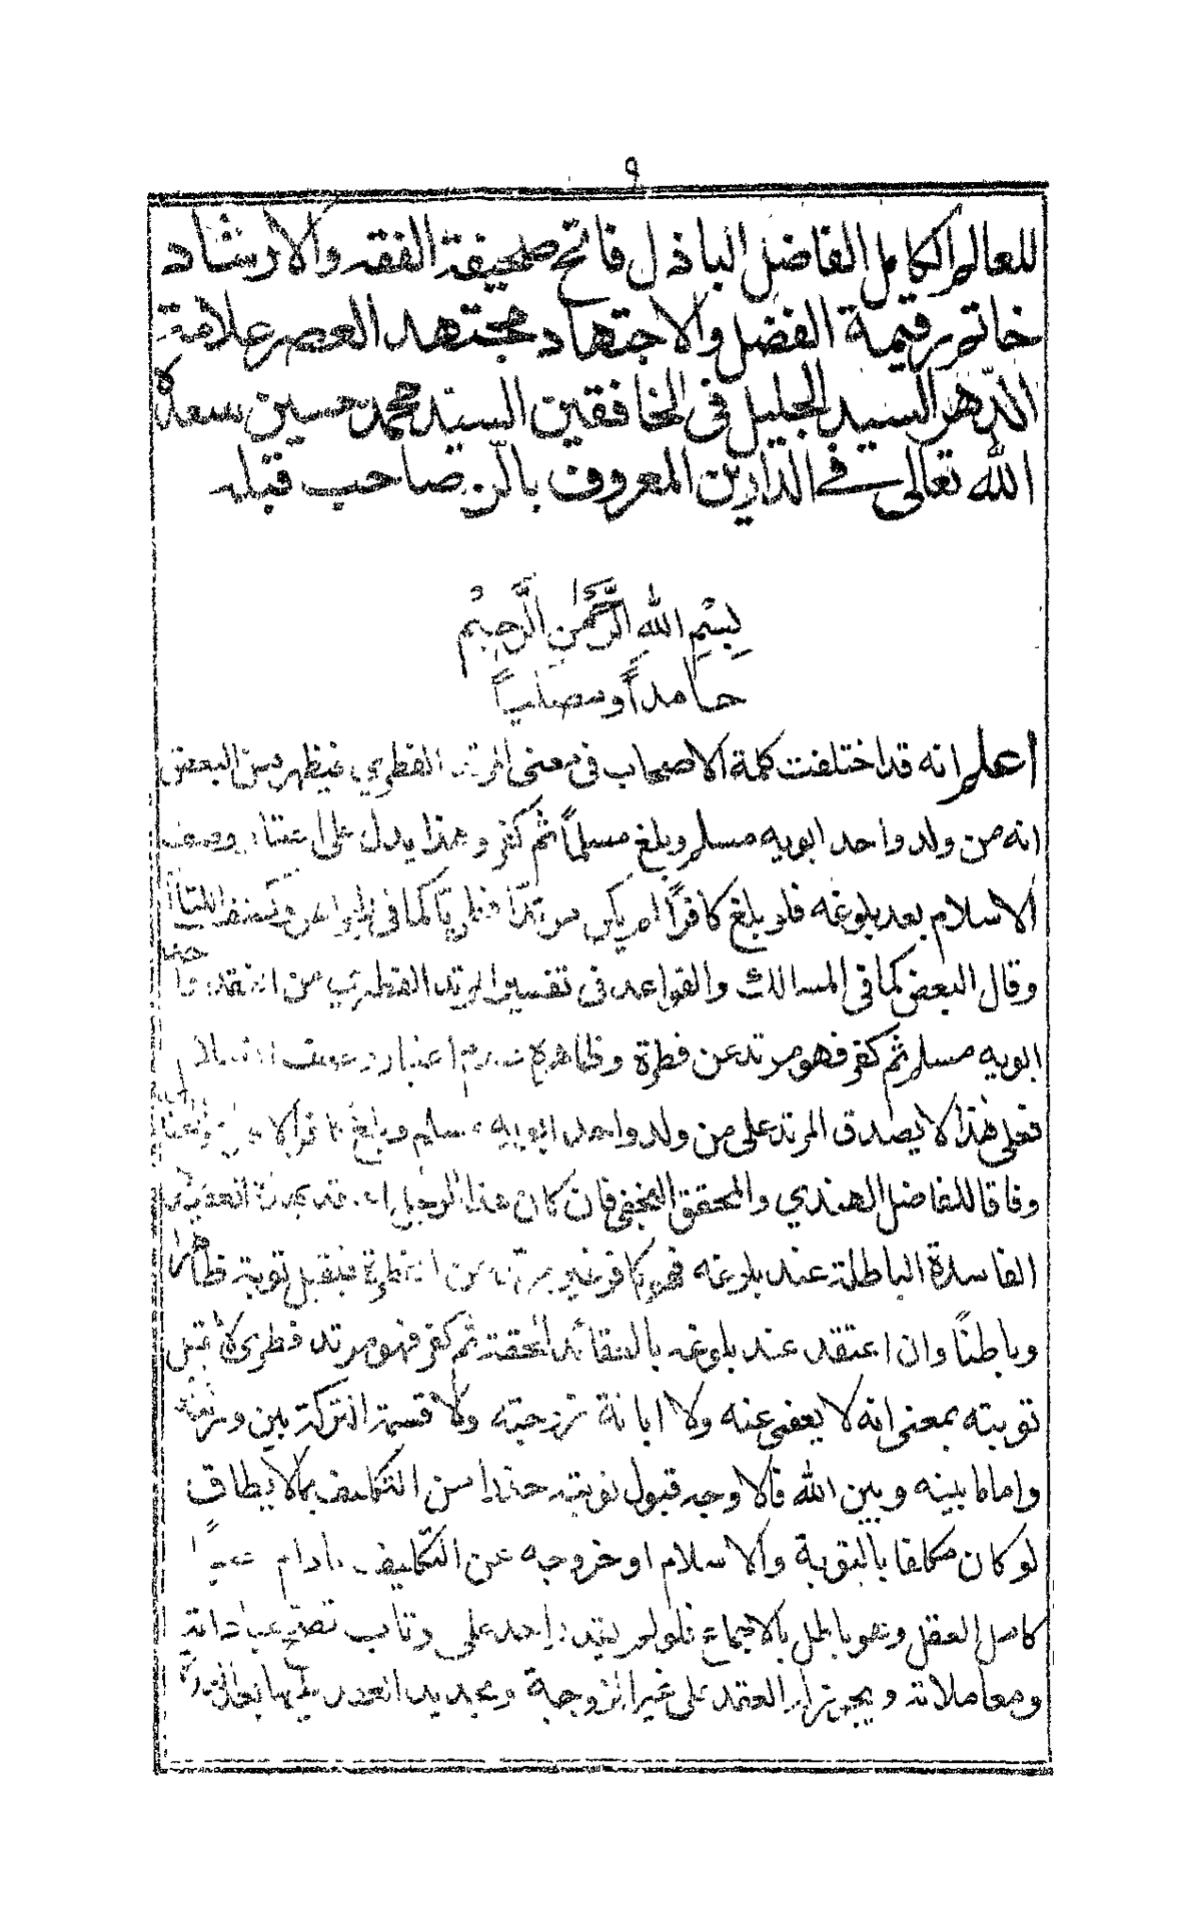 ٩
للعالم الكامل الفاضل الباذل فاتح صحيفة الفقه والارشاد
خاتم رقيمة الفضل والاجتهاد مجتهد العصر علامة
الدهر السيد الجليل فى الخافقين السيد محمد حسين سعده
الله تعالى فى الدارين المعروف صاحب قبله
بِسْمِ اللهِ الرَّحْمٰنِ الرَّحِيْمِ
حامداً ومصلياً
اعلم انه قد اختلفت كلمة الاصحاب فى معنى المرتد الفطري فيظهر من البعض
انه من ولد واحد ابويه مسلم وبلغ مسلماً ثم كفر وهذا يدل على وصف
الاسلام بعد بلوغه فلو بلغ كافراً لم يكن مرتداً فطرياً كما فى الجواهر وكشف اللثام
وقال البعض كما فى المسالك والقواعد فى تفسير المرتد الفطري من انعقد واحد
ابويه مسلم ثم كفر فهو مرتد عن فطرة وظاهره عدم اعتبار وصف
فعلى هذا لا يصدق المرتد على من ولد واحد ابويه مسلم وبلغ كافرا
وفاقا للفاضل الهندي والمحقق النجفى فان كان هذا الرجل
الفاسدة الباطلة عند بلوغه فهو كافر غير مرتد عن الفطرة فيقبل توبة ظاهرا
وباطنًا وان اعتقد عند بلوغه بالعقائد الحقة ثم كفر فهو مرتد فطرى لا تقبل
توبته بمعنى انه لا يعفى عنه ولا ابانة زوجته ولا قسمة التركة بين ورثته
واما ما بينه وبين الله فالاوجه قبول توبته حذرا من التكليف بما لا يطاق
لو كان مكلفا بالتوبة والاسلام او خروجه عن التكليف مادام حيا
كامل العقل وهو باطل بالاجماع فلو لم يقدر احد على وتاب تصح عباداته
ومعاملاته ويجوز العقد على غير الزوجة وتجديد العقد